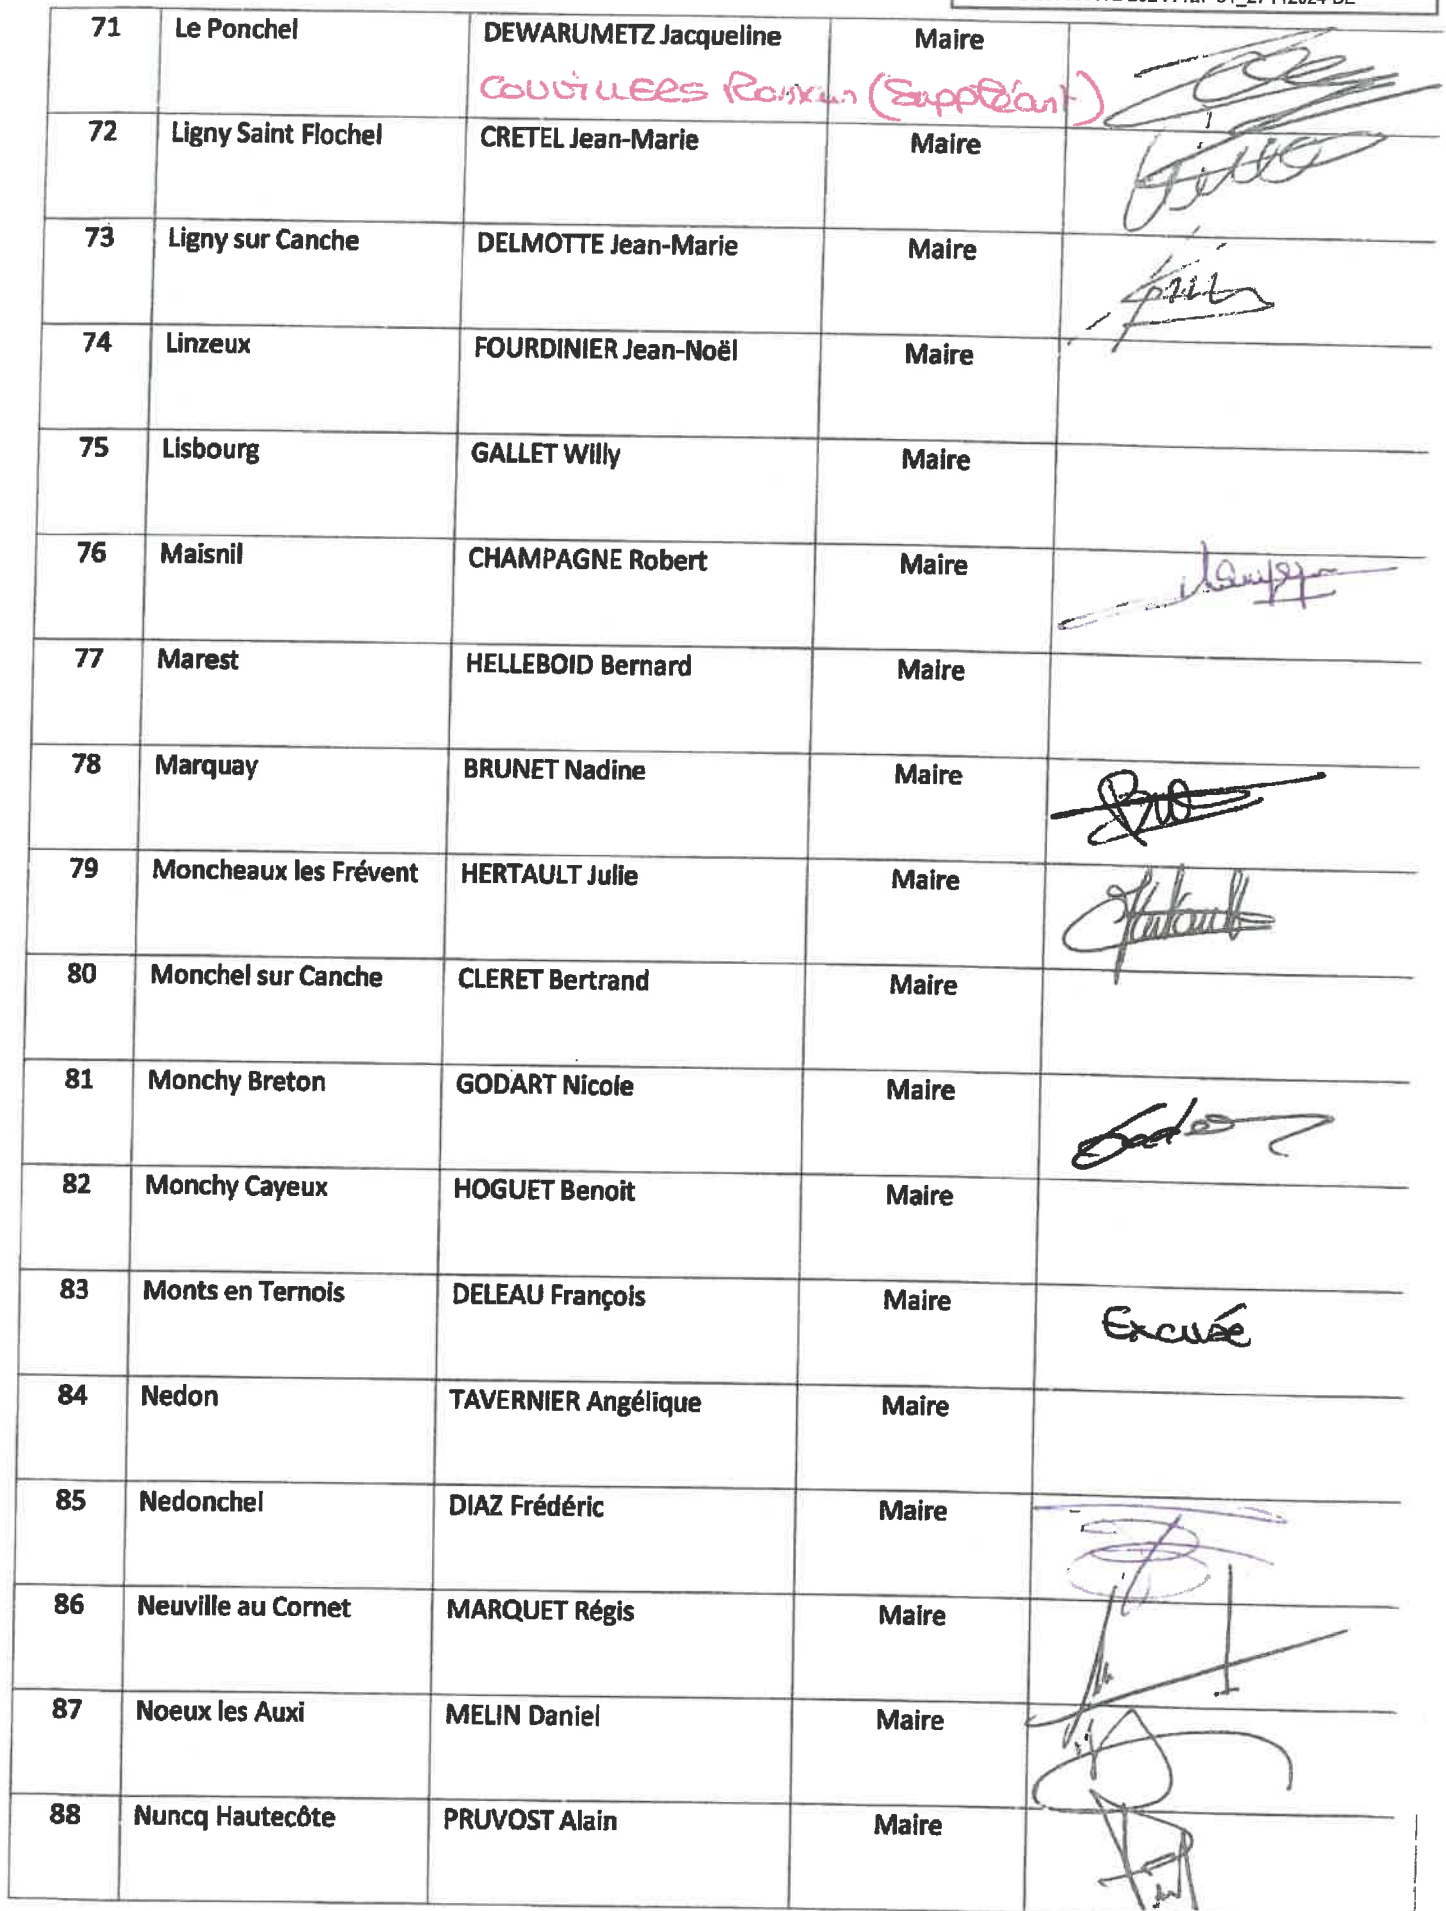 71 Le Ponchel DEWARUMETZ Jacqueline Maire
(Suppléant)
72 Ligny Saint Flochel CRETEL Jean-Marie Maire
73 Ligny sur Canche DELMOTTE Jean-Marie Maire
74 Linzeux FOURDINIER Jean-Noël Maire
75 Lisbourg GALLET Willy Maire
76 Maisnil CHAMPAGNE Robert Maire
77 Marest HELLEBOID Bernard Maire
78 Marquay BRUNET Nadine Maire
79 Moncheaux les Frévent HERTAULT Julie Maire
80 Monchel sur Canche CLERET Bertrand Maire
81 Monchy Breton GODART Nicole Maire
82 Monchy Cayeux HOGUET Benoit Maire
83 Monts en Ternois DELEAU François Maire Excusée
84 Nedon TAVERNIER Angélique Maire
85 Nedonchel DIAZ Frédéric Maire
86 Neuville au Cornet MARQUET Régis Maire
87 Noeux les Auxi MELIN Daniel Maire
88 Nuncq Hautecôte PRUVOST Alain Maire